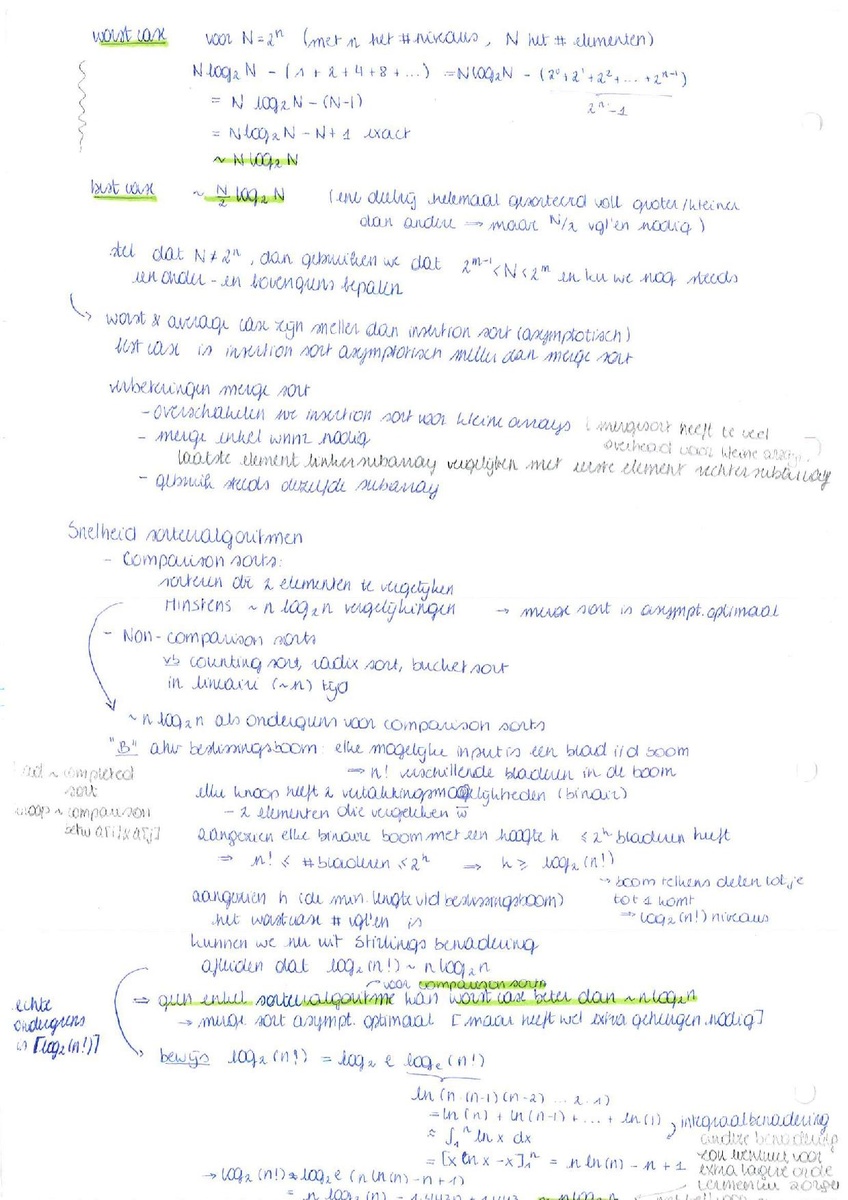 worst case voor N=2ⁿ (met n het # niveaus, N het # elementen)
N log₂N - (1+2+4+8+...) = N log₂N - (2⁰+2¹+2²+...+2ⁿ⁻¹)
2ⁿ-1
= N log₂N - (N-1)
= N log₂N - N + 1 exact
~ N log₂N
best case ~ N/2 log₂N (ene deelrij helemaal gesorteerd voll groter/kleiner
dan andere → maar N/2 vgl'en nodig)
stel dat N≠2ⁿ, dan gebruiken we dat 2ᵐ⁻¹<N<2ᵐ en ku we nog steeds
een onder- en bovengrens bepalen
↳ worst & average case zijn sneller dan insertion sort (asymptotisch)
best case is insertion sort asymptotisch sneller dan merge sort
verbeteringen merge sort
- overschakelen nr insertion sort voor kleine arrays (mergesort heeft te veel
overhead voor kleine arrays.
- merge enkel wnnr nodig
laatste element linkersubarray vergelijken met eerste element rechtersubarray
- gebruik steeds dezelfde subarray
Snelheid sorteeralgoritmen
- Comparison sorts:
sorteren die 2 elementen te vergelijken
Minstens ~ n log₂n vergelijkingen → merge sort is asympt. optimaal
- Non-comparison sorts
vb counting sort, radix sort, bucket sort
in lineaire (~n) tijd
~ n log₂n als ondergrens voor comparison sorts
"B" ahv beslissingsboom: elke mogelijke input is een blad i/d boom
⇒ n! verschillende bladeren in de boom
blad ~ completed
sort
knoop ~ comparison
elke knoop heeft 2 vertakkingsmogelijkheden (binair)
- 2 elementen die vergeleken w̄
aangezien elke binaire boom met een hoogte h ≤2ʰ bladeren heeft
⇒ n! ≤ #bladeren ≤2ʰ ⇒ h ≥ log₂(n!)
→ boom telkens delen tot je
tot 1 komt
⇒ log₂(n!) niveaus
aangezien h (de min. lengte v/d beslissingsboom)
het worst case # vgl'en is
kunnen we nu uit Stirlings benadering
afleiden dat log₂(n!) ~ n log₂n
voor comparison sorts
⇒ geen enkel sorteeralgoritme kan worst case beter dan ~n log₂n
→ merge sort asympt. optimaal [maar heeft wel extra geheugen nodig]
echte
ondergrens
is ⌈log₂(n!)⌉
bewijs log₂(n!) = log₂e logₑ(n!)
ln(n·(n-1)(n-2)...2·1)
= ln(n) + ln(n-1) + ... + ln(1)
integraalbenadering
≈ ∫₁ⁿ ln x dx
andere benadering
= [x ln x - x]₁ⁿ = n ln(n) - n + 1
voor
extra lagere orde
termen
→ log₂(n!) ≈ log₂e (n ln(n) - n + 1)
= n log₂(n) - 1,443n + 1,443 ~ n log₂n